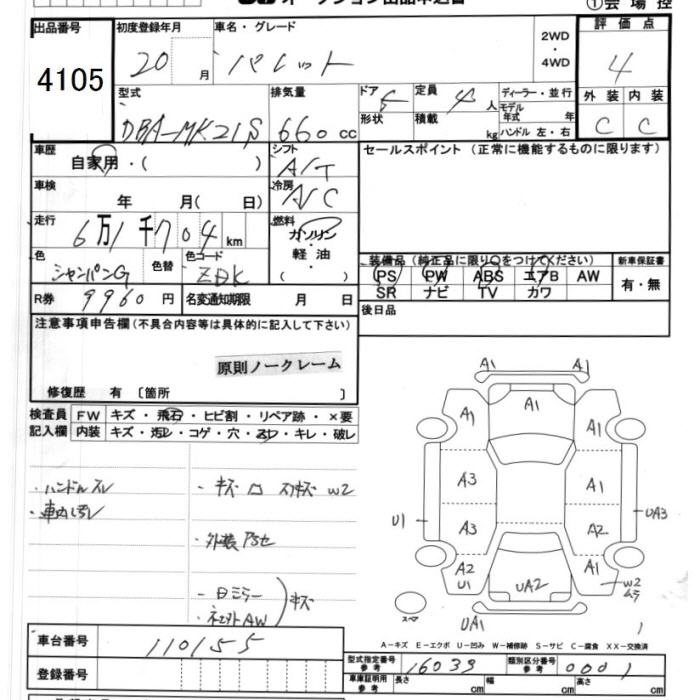 オークション出品申込書
①会場控
出品番号
4105
初度登録年月
20 月
車名・グレード
パレット
2WD
・
4WD
評価点
4
外装 内装
C C
型式
DBA-MK21S
排気量
660 cc
ドア
5
形状
定員
4 人
積載 kg
ディーラー・並行
モデル
年式 年
ハンドル 左・右
車歴
自家用・( )
シフト
A/T
車検
年 月( 日)
冷房
A/C
走行
6万1千704 km
燃料
ガソリン
・
軽油
( )
色
シャンパンG
色替
色コード
ZDK
R券 9960 円
名変通知期限 月 日
セールスポイント(正常に機能するものに限ります)
装備品(純正品に限り○をつけてください)
PS PW ABS エアB AW
SR ナビ TV カワ
新車保証書
有・無
後日品
注意事項申告欄(不具合内容等は具体的に記入して下さい)
原則ノークレーム
修復歴 有 〔箇所 〕
検査員 FW キズ・飛石・ヒビ割・リペア跡・×要
記入欄 内装 キズ・汚レ・コゲ・穴・スレ・キレ・破レ
・ハンドルスレ
・車内汚レ
・外装
・日ミラー
キズ
A1 A1
A1
A1 A1
A3 A1
U1 UA3
A3 A2
A2 A1
U1
UA2
W2
ムラ
スペア
UA1
A-キズ E-エクボ U-凹み W-補修跡 S-サビ C-腐食 XX-交換済
車台番号 110155
登録番号
型式指定番号
参考
16039
類別区分番号
参考
0001
車庫証明用
参考
長さ cm 幅 cm 高さ cm